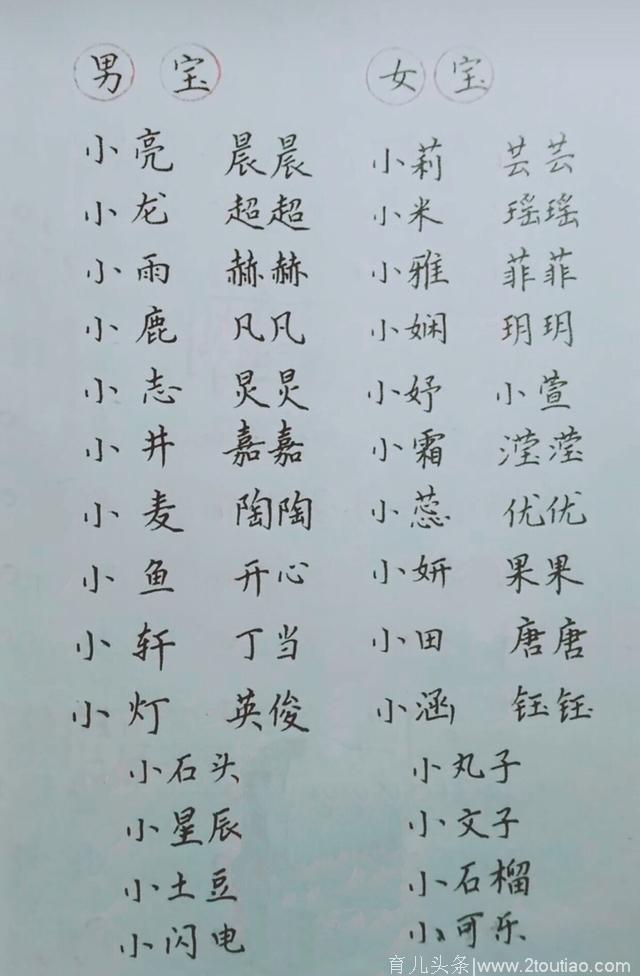 男宝 女宝
小亮 晨晨 小莉 芸芸
小龙 超超 小米 瑶瑶
小雨 赫赫 小雅 菲菲
小鹿 凡凡 小娴 玥玥
小志 炅炅 小妤 小萱
小井 嘉嘉 小霜 滢滢
小麦 陶陶 小蕊 优优
小鱼 开心 小妍 果果
小轩 丁当 小田 唐唐
小灯 英俊 小涵 钰钰
小石头 小丸子
小星辰 小文子
小土豆 小石榴
小闪电 小可乐
育儿头条 www.2toutiao.com